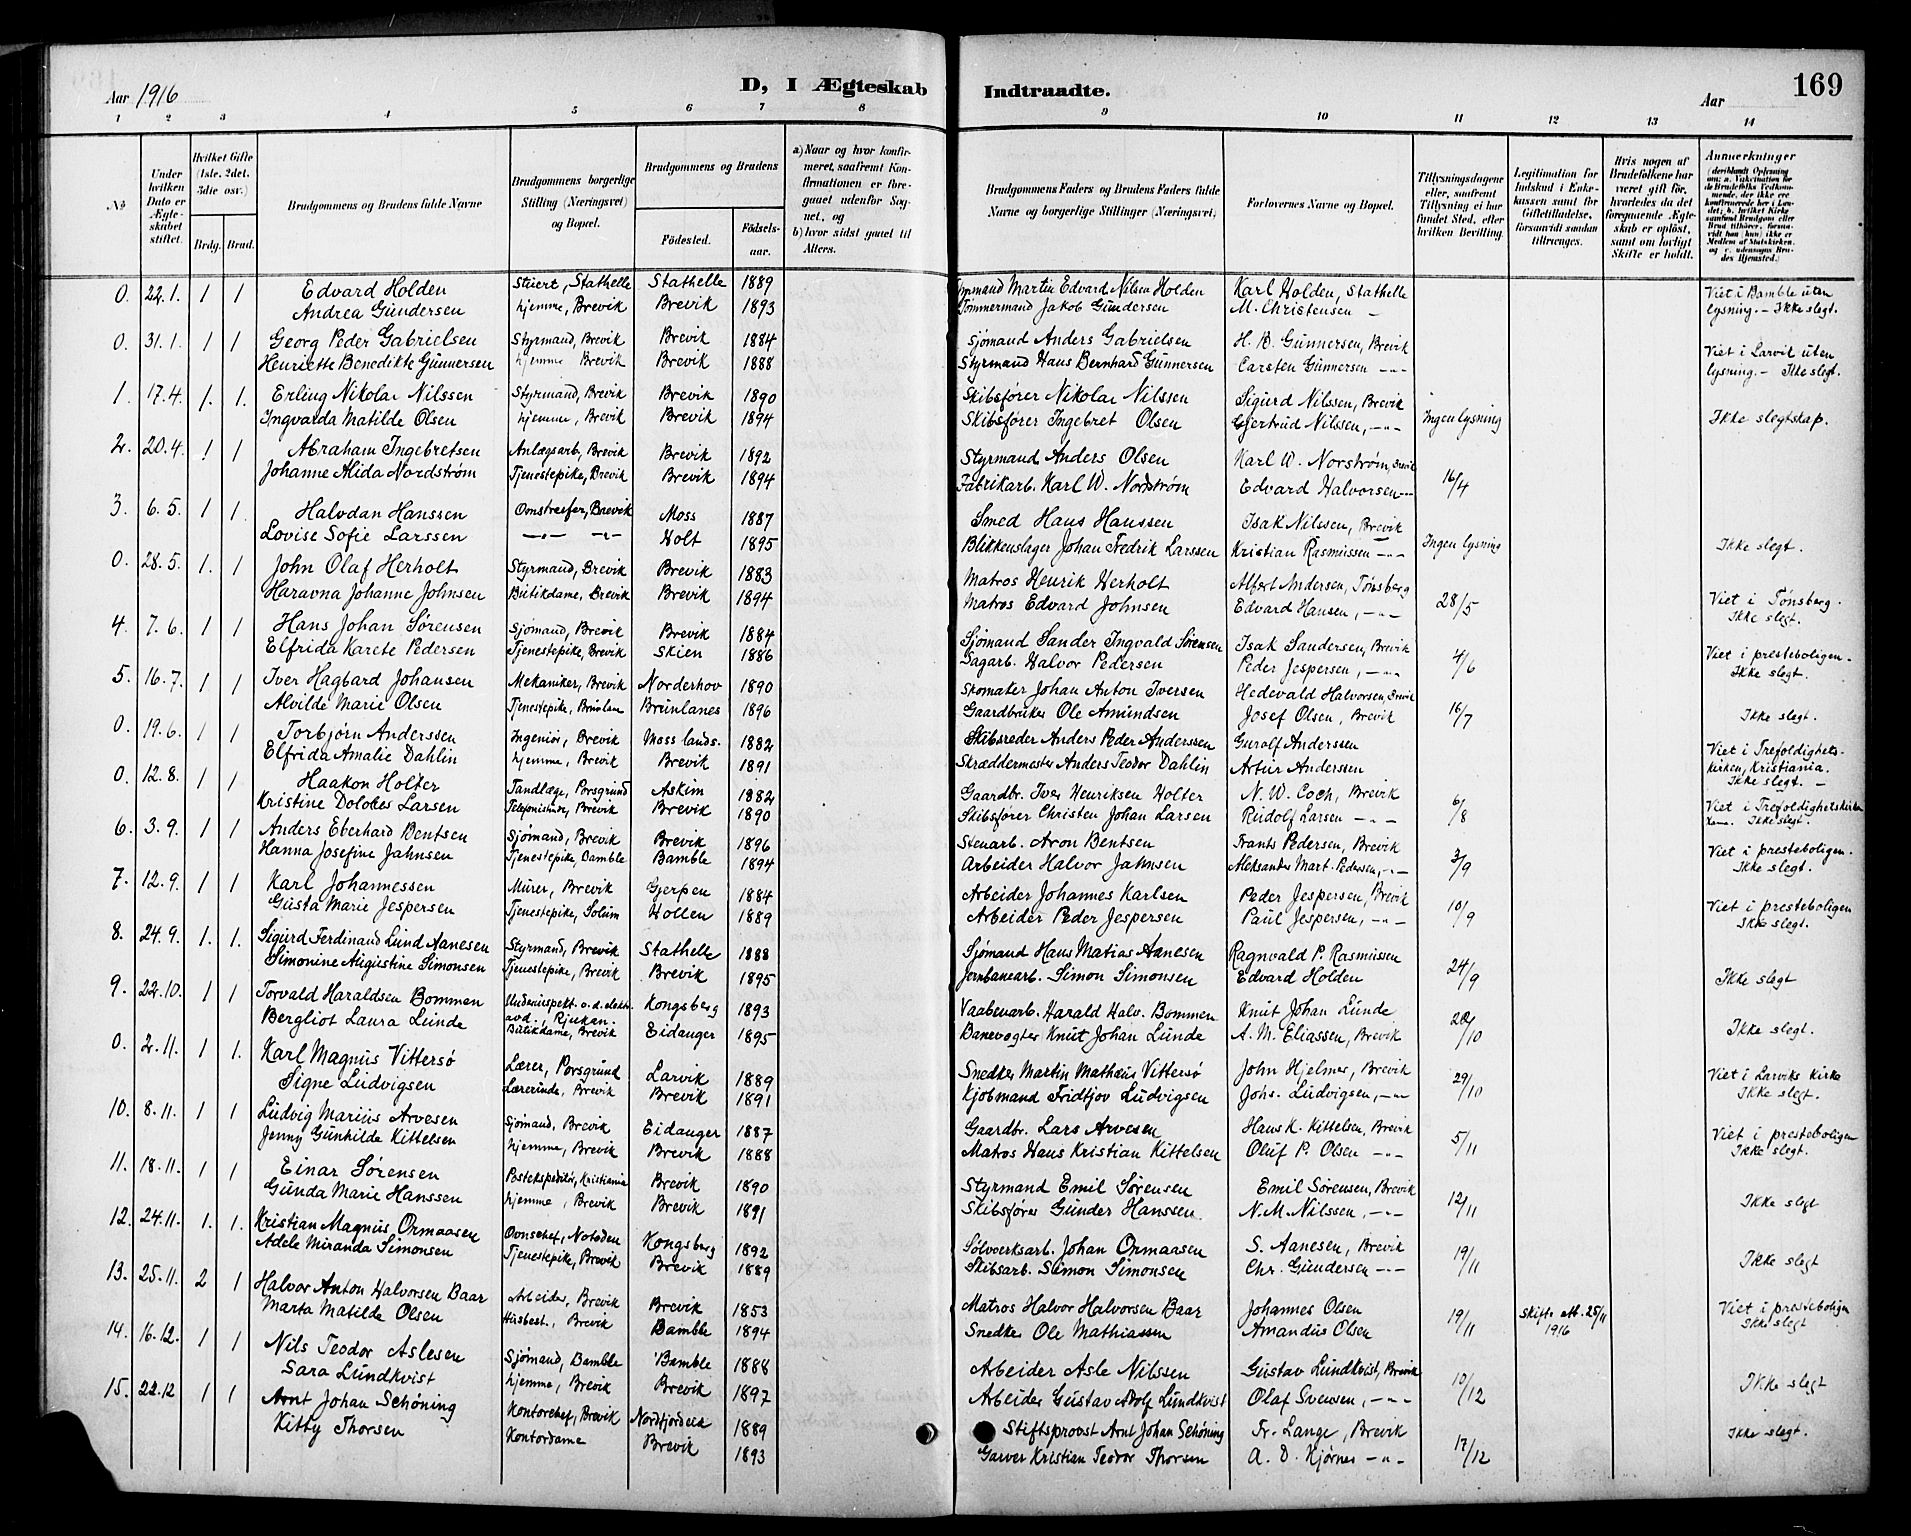 Aar 1916
D, I Ægteskab
Indtraadte.
Aar
169
1 2 3 4 5 6 7 8 9 10 11 12 13 14
No
Under hvilken Dato er Ægteskabet stiftet.
Hvilket Gifte (1ste, 2det, 3die osv.)
Brdg. Brud.
Brudgommens og Brudens fulde Navne
Brudgommens borgerlige Stilling (Næringsvei) og Bopæl.
Brudgommens og Brudens
Fødested.
Fødselsaar.
a) Naar og hvor konfirmeret, saafremt Konfirmationen er foregaaet udenfor Sognet, og
b) hvor sidst gaaet til Alters.
Brudgommens Faders og Brudens Faders fulde Navne og borgerlige Stillinger (Næringsvei).
Forlovernes Navne og Bopæl.
Tillysningsdagene eller, saafremt Tillysning ei har fundet Sted, efter hvilken Bevilling.
Legitimation for Indskud i Enkekassen samt for Giftetilladelse, forsaavidt saadan tiltrænges.
Hvis nogen af Brudefolkene har været gift før, hvorledes da det foregaaende Ægteskab er opløst, samt om lovligt Skifte er holdt.
Anmerkninger
0. 22.1. 1 1 Edvard Holden Stuert, Stathelle Stathelle 1889 Martin Edvard Nilsen Holden Karl Holden, Stathelle Viet i Bamble uten
Andrea Gundersen hjemme, Brevik Brevik 1893 Tømmermand Jakob Gundersen M. Christensen — lysning. — Ikke slegt.
0. 31.1. 1 1 Georg Peder Gabrielsen Styrmand, Brevik Brevik 1884 Sjømand Anders Gabrielsen H. B. Gunnersen, Brevik Viet i Larvik uten
Henriette Benedikte Gunnersen hjemme Brevik Brevik 1888 Styrmand Hans Bernhard Gunnersen Carsten Gunnersen -"- lysning. — Ikke slegt.
1. 17.4. 1. 1. Erling Nikolai Nilssen Styrmand, Brevik Brevik 1890 Skibsfører Nikolai Nilssen Sigurd Nilssen, Brevik
Ingvalda Matilde Olsen hjemme, Brevik Brevik 1894 Skibsfører Ingebret Olsen Gjertrud Nilssen, -"- Ingen lysning Ikke slegtskap.
2. 20.4. 1 1 Abraham Ingebretsen Anlægsarb, Brevik Brevik 1892 Styrmand Anders Olsen Karl W. Norstrøm, Brevik
Johanne Alida Nordstrøm Tjenestepike, Brevik Brevik 1894 Fabrikarb. Karl W. Nordstrøm Edvard Halvorsen -"- 16/4
3. 6.5. 1 1. Halvdan Hanssen Brevik Moss 1887 Smed Hans Hanssen Isak Nilssen, Brevik
Lovise Sofie Larssen -"- -"- Holt 1895 Blikkenslager Johan Fredrik Larssen Kristian Rasmussen -"- Ingen lysning Ikke slegt.
0. 28.5. 1. 1 John Olaf Herholt Styrmand, Brevik Brevik 1883 Matros Henrik Herholt Alfert Andersen, Tønsberg
Haravna Johanne Johnsen Butikdame, Brevik Brevik 1894 Matros Edvard Johnsen Edvard Hansen, -"- 28/5 Viet i Tønsberg. Ikke slegt.
4. 7.6. 1 1 Hans Johan Sørensen Sjømand, Brevik Brevik 1884 Sjømand Sander Ingvald Sørensen Isak Sandersen, Brevik
Elfrida Karete Pedersen Tjenestepike, Brevik Skien 1886 Sagarb. Halvor Pedersen Peder Jespersen, -"- 4/6 Viet i presteboligen. Ikke slegt.
5. 16.7. 1 1 Iver Hagbard Johansen Mekaniker, Brevik Norderhov 1890 Skomaker Johan Anton Iversen Hedevald Halvorsen, Brevik
Alvilde Marie Olsen Tjenestepike, Brunlanes Brunlanes 1896 Gaardbruker Ole Amundsen Josef Olsen, Brevik 16/7 Ikke slegt.
0. 19.6. 1 1 Torbjørn Anderssen Ingeniør, Brevik Moss lands. 1882 Skibsreder Anders Peder Anderssen Gurolf Anderssen Viet i Trefoldighets-
Elfrida Amalie Dahlin hjemme, Brevik Brevik 1891 Skræddermester Anders Teodor Dahlin Artur Anderssen kirken, Kristiania. Ikke slegt. —
0. 12.8. 1 1 Haakon Holter Tandlæge, Porsgrund Askim 1882 Gaardbr. Iver Henriksen Holter N. W. Coch, Brevik
Kristine Dolores Larsen Telefonistinde, Brevik Brevik 1890 Skibsfører Christen Johan Larsen Rudolf Larsen -"- 6/8 Viet i Trefoldighetskirken Ikke slegt.
6. 3.9. 1 1 Anders Eberhard Bentsen Sjømand, Brevik Brevik 1896 Stenarb. Aron Bentsen Frants Pedersen, Brevik
Hanna Josefine Jahnsen Tjenestepike Bamble Bamble 1894 Arbeider Halvor Jahnsen Aleksander Mart. Pedersen, -"- 3/9 Viet i presteboligen. Ikke slegt.
7. 12.9. 1 1 Karl Johannessen Murer, Brevik Gjerpen 1884 Arbeider Johannes Karlsen Peder Jespersen, Brevik
Gusta Marie Jespersen Tjenestepike, Solum Hollen 1889 Arbeider Peder Jespersen Paul Jespersen, -"- 10/9 Viet i presteboligen Ikke slegt.
8. 24.9. 1. 1. Sigurd Ferdinand Lund Aanesen Styrmand, Brevik Stathelle 1888 Sjømand Hans Matias Aanesen Ragnvald P. Rasmussen
Simonine Augustine Simonsen Tjenestepike, Brevik Brevik 1895 Jernbanearb. Simon Simonsen Edvard Holden 24/9 Ikke slegt
9. 22.10. 1 1 Torvald Haraldsen Bommen avd., Rjukan. Kongsberg 1893 Vaabenarb. Harald Halv. Bommen Knut Johan Lunde
Bergliot Laura Lunde Butikdame, Brevik Eidanger 1895 Banevogter Knut Johan Lunde A. M. Eliassen, Brevik 22/10 Ikke slegt.
0. 2.11. 1 1. Karl Magnus Vittersø Lærer, Porsgrund Larvik 1889 Snedker Martin Mathæus Vittersø John Hjelmer, Brevik
Signe Ludvigsen Lærerinde, Brevik Brevik 1891 Kjøbmand Fridtjov Ludvigsen Johs. Ludvigsen, -"- 29/10 Viet i Larviks kirke Ikke slegt.
10. 8.11. 1 1 Ludvig Marius Arvesen Sjømand, Brevik Eidanger 1887 Gaardbr. Lars Arvesen Hans K. Kittelsen, Brevik
Jenny Gunhilde Kittelsen hjemme, Brevik Brevik 1888 Matros Hans Kristian Kittelsen Oluf P. Olsen -"- 5/11 Viet i presteboligen Ikke slegt.
11. 18.11. 1 1 Einar Sørensen Postekspeditør, Kristiania Brevik 1890 Styrmand Emil Sørensen Emil Sørensen, Brevik
Gunda Marie Hanssen hjemme, Brevik Brevik 1891 Skibsfører Gunder Hanssen N. M. Nilssen, -"- 12/11 Ikke slegt
12. 24.11. 1. 1. Kristian Magnus Ormaasen Ovnschef, Notodden Kongsberg 1892 Sølvverksarb. Johan Ormaasen S. Aanesen, Brevik
Adele Miranda Simonsen Tjenestepike, Brevik Brevik 1889 Skibsarb. Simon Simonsen Chr. Gundersen -"- 19/11 Ikke slegt
13. 25.11. 2 1 Halvor Anton Halvorsen Baar Arbeider, Brevik Brevik 1853 Matros Halvor Halvorsen Baar Johannes Olsen
Marta Matilde Olsen Husbest., Brevik Bamble 1894 Snedker Ole Mathiassen Amandus Olsen 19/11 Skifte. At. 25/11 1916 Viet i presteboligen Ikke slegt
14. 16.12. 1 1 Nils Teodor Aslesen Sjømand, Bamble Bamble 1888 Arbeider Asle Nilssen Gustav Lundkvist, Brevik
Sara Lundkvist hjemme, Brevik Brevik 1897 Arbeider Gustav Adolf Lundkvist Olaf Svensen, -"- 10/12 Ikke slegt
15. 22.12 1 1 Arnt Johan Schøning Kontorchef, Brevik Nordfjordeid 1889 Stiftsprovst Arnt Johan Schøning Fr. Lange, Brevik
Kitty Thorsen Kontordame Brevik 1893 Garver Kristian Teodor Thorsen A. D. Kjørnes -"- 17/12 Ikke slegt.